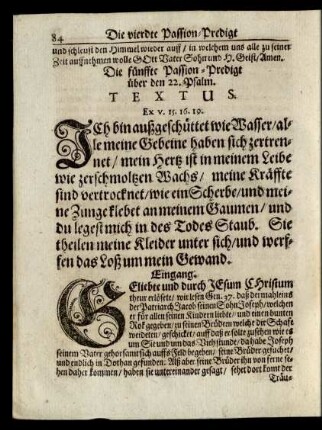 84 Die vierdte Passion/Predigt
und schleust den Himmel wieder auff / in welchem uns alle zu seiner
Zeit auffnehmen wolle GOtt Vater Sohn und H. Geist / Amen.
Die fünffte Passion-Predigt
über den 22. Psalm.
TEXTUS.
Ex v. 15. 16. 19.
ICh bin außgeschüttet wie Wasser / al-
le meine Gebeine haben sich zertren-
net / mein Hertz ist in meinem Leibe
wie zerschmoltzen Wachs / meine Kräffte
sind vertrocknet / wie ein Scherbe / und mei-
ne Zunge klebet an meinem Gaumen / und
du legest mich in des Todes Staub. Sie
theilen meine Kleider unter sich / und werf-
fen das Loß um mein Gewand.
Eingang.
GEliebte und durch JEsum CHristum
theur erlösete / wir lesen Gen. 37. daß der mahleins
der Patriarch Jacob seinen Sohn Joseph / welchen
er für allen seinen Kindern liebte / und ein en bunten
Rok gegeben / zu seinen Brüdern welche der Schafe
weydeten / geschicket / auff daß er solte zusehen wie es
um Sie und um das Viehstunde / da habe Joseph
seinem Vater gehorsamt sich auffs Feld begeben / seine Brüder gesuchet /
und endlich in Dothan gefunden: Alß aber seine Brüder ihn von ferne se-
hen daher kommen / haben sie untereinander gesagt / sehet dort komt der
Träu-